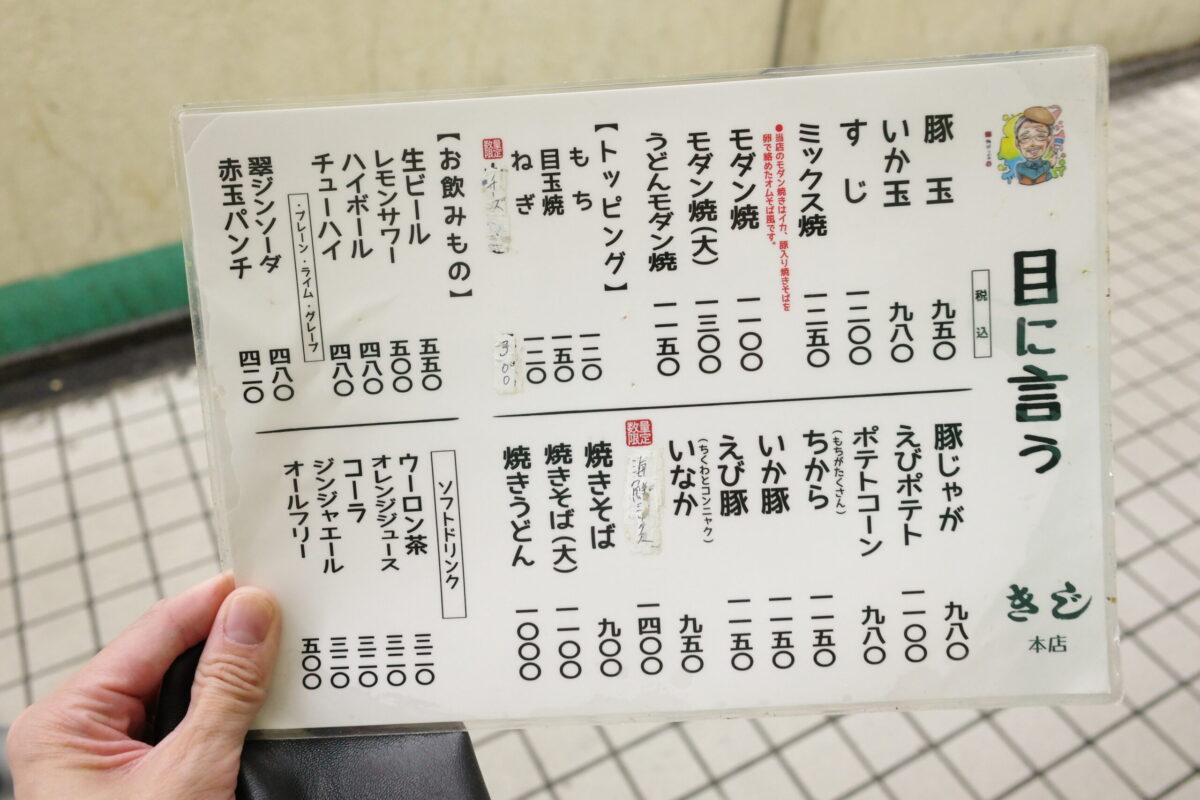 目に言う
きじ
本店
税込
豚玉 九五〇
いか玉 九八〇
すじ 一二〇〇
ミックス焼 一二五〇
●当店のモダン焼きはイカ、豚入り焼きそばを
卵で絡めたオムそば風です。
モダン焼 一一〇〇
モダン焼(大) 一三〇〇
うどんモダン焼 一一五〇
【トッピング】
もち 一二〇
目玉焼 一五〇
ねぎ 一二〇
数量限定 300
【お飲みもの】
生ビール 五五〇
レモンサワー 五〇〇
ハイボール 四八〇
チューハイ 四八〇
・プレーン・ライム・グレープ
翠ジンソーダ 四八〇
赤玉パンチ 四二〇
豚じゃが 九八〇
えびポテト 一一〇〇
ポテトコーン 九八〇
ちから 一一五〇
(もちがたくさん)
いか豚 一一五〇
えび豚 一一五〇
いなか 九五〇
(ちくわとコンニャク)
数量限定 海鮮ミックス 一四〇〇
焼きそば 九〇〇
焼きそば(大) 一一〇〇
焼きうどん 一〇〇〇
ソフトドリンク
ウーロン茶 三二〇
オレンジジュース 三二〇
コーラ 三二〇
ジンジャエール 三二〇
オールフリー 五〇〇